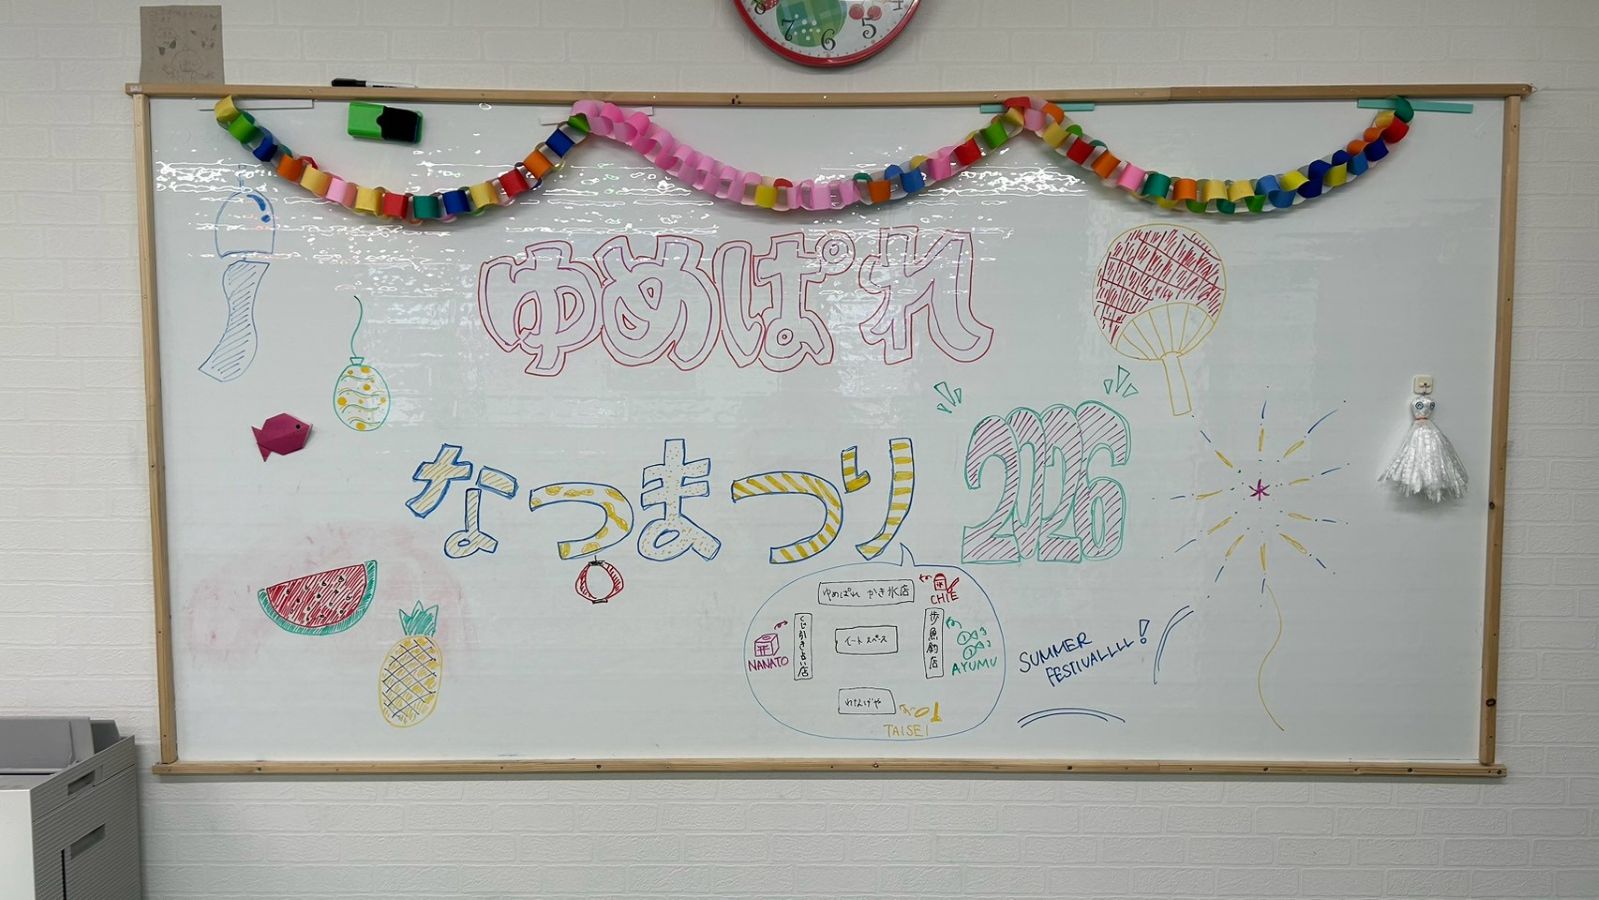 7 6 5
ゆめぱれ
なつまつり 2026
ゆめぱれ かき氷店
CHIE
くじ引き占い店
NANATO
イートスペース
歩魚釣店
AYUMU
わなげや
TAISEI
SUMMER
FESTIVALLLL!